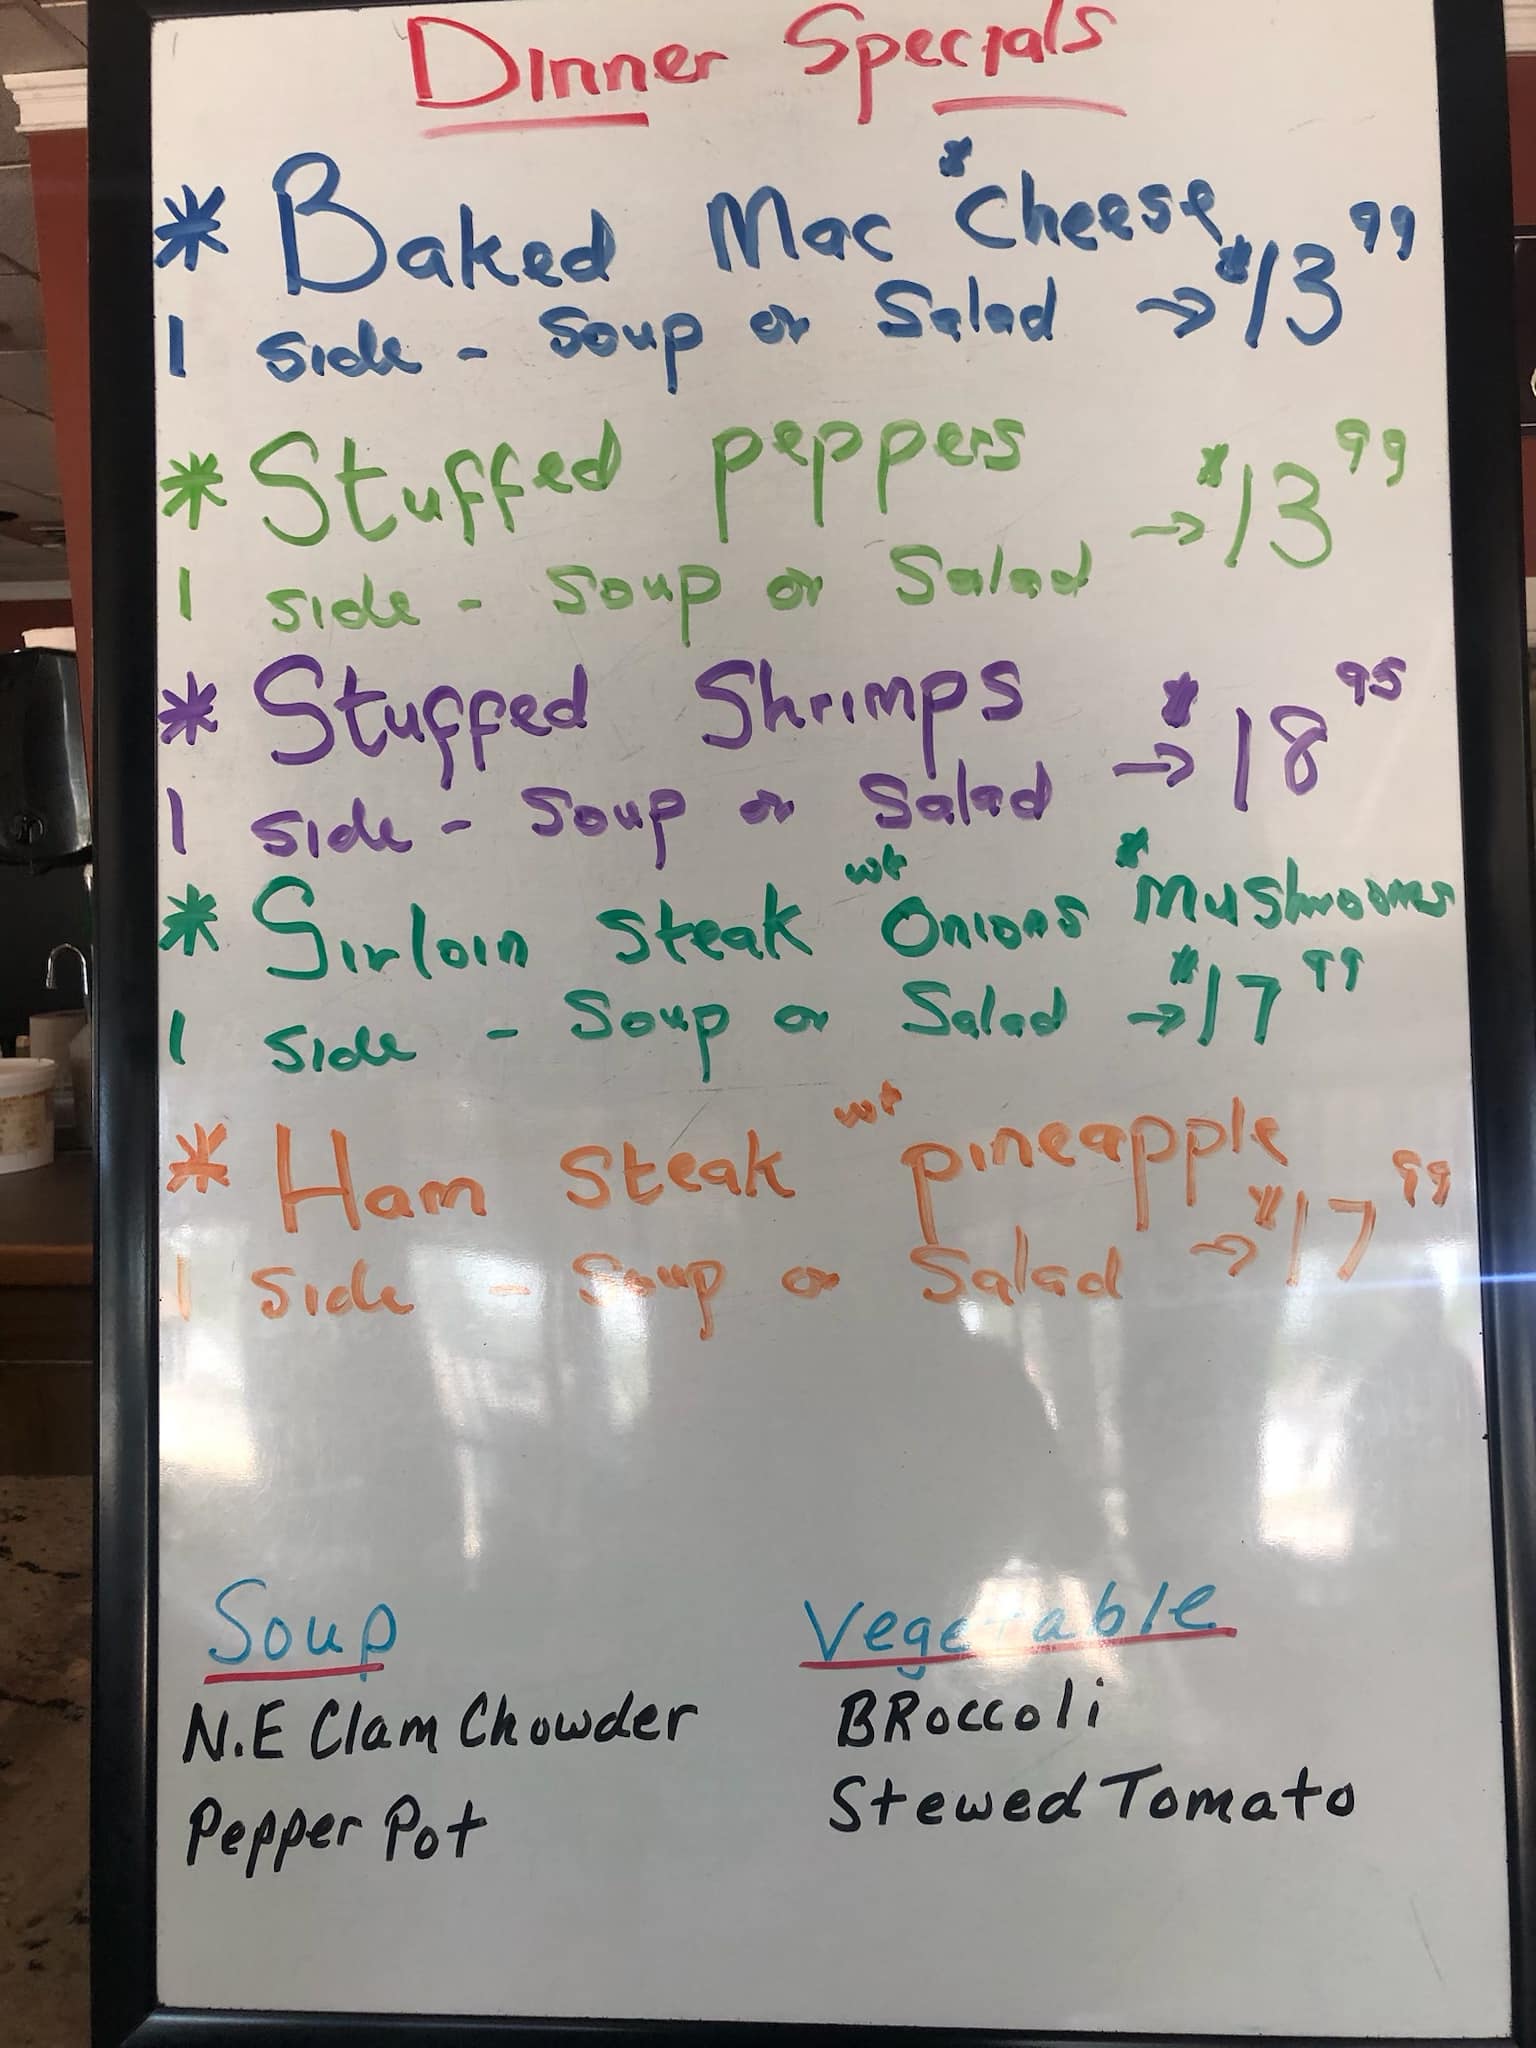 Dinner Specials
* Baked Mac * Cheese
1 side - Soup or Salad → $13.99
* Stuffed peppers
1 side - Soup or Salad → $13.99
* Stuffed Shrimps
1 side - Soup or Salad → $18.95
* Sirloin steak wt Onions * Mushrooms
1 side - Soup or Salad → $17.99
* Ham steak wt pineapple
1 side - Soup or Salad → $17.99
Soup
N.E Clam Chowder
Pepper Pot
Vegetable
BRoccoli
Stewed Tomato